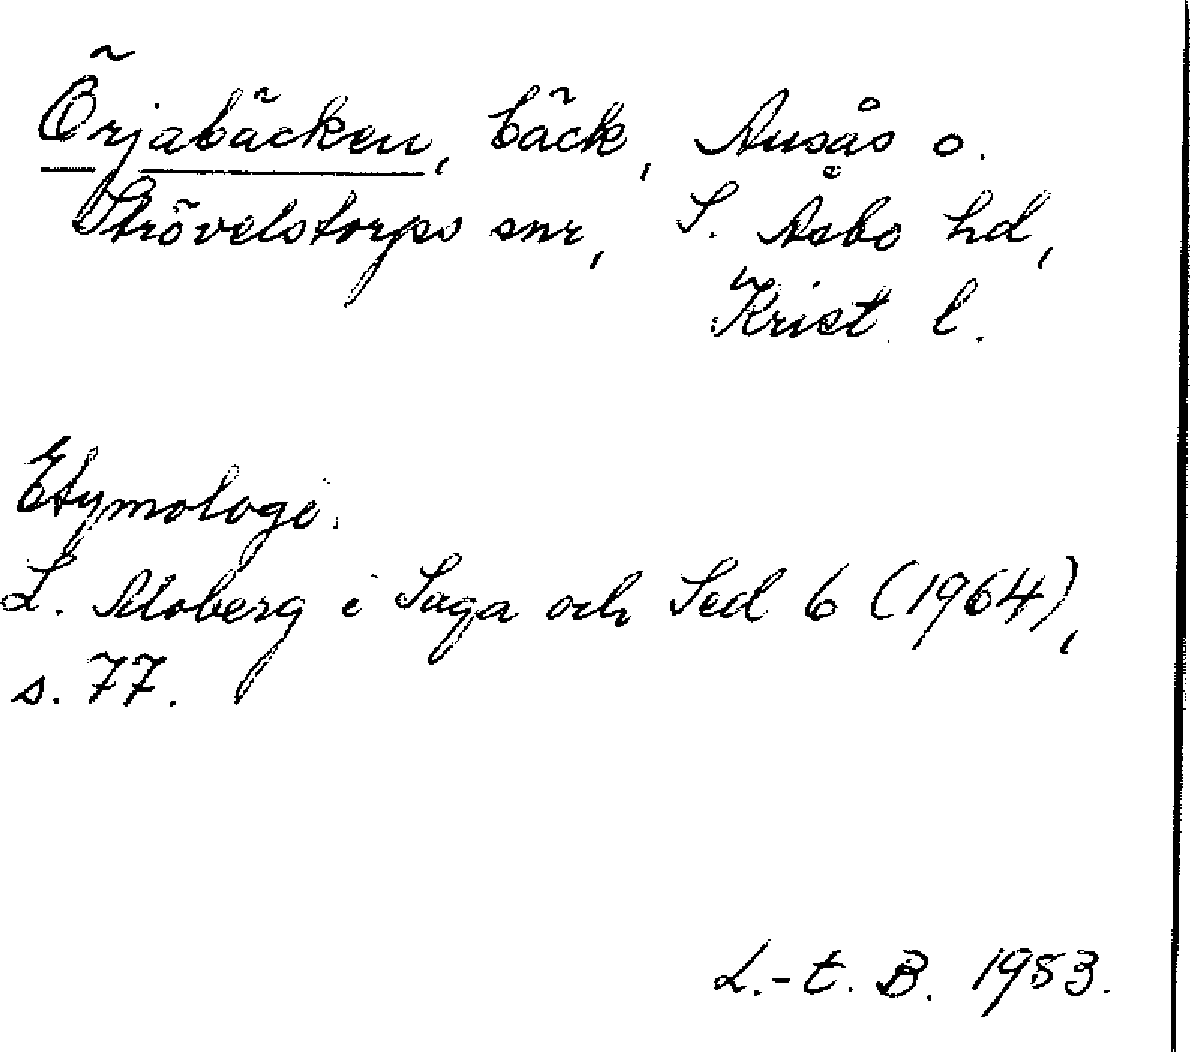 Örjabäcken, bäck, Ausås o.
Strövelstorps snr, S. Åsbo hd,
Krist. l.
Etymologi.
L. Moberg i Saga och Sed 6 (1964),
s. 77.
L.-t. B. 1983.